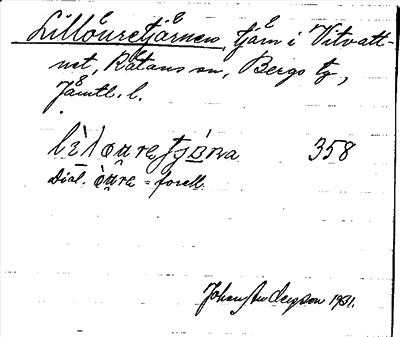 Lillöuretjärnen, tjärn i Vitvatt-
net, Rätans sn, Bergs tg,
Jämtl. l.
358
Dial. = forell
Johan Andersson 1931.